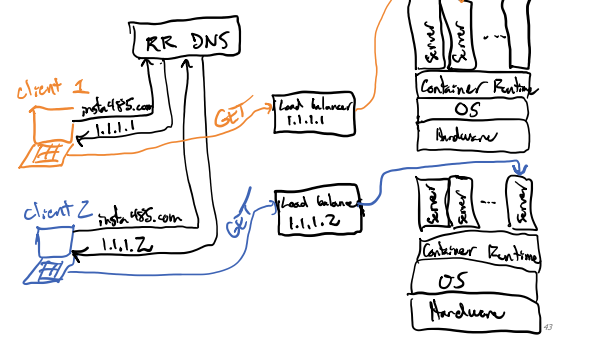 RR DNS
client 1
insta485.com
1.1.1.1
GET
Load balancer
1.1.1.1
Server
Server
...
Container Runtime
OS
Hardware
client 2
insta485.com
1.1.1.2
GET
Load balancer
1.1.1.2
Server
Server
...
Server
Container Runtime
OS
Hardware
43